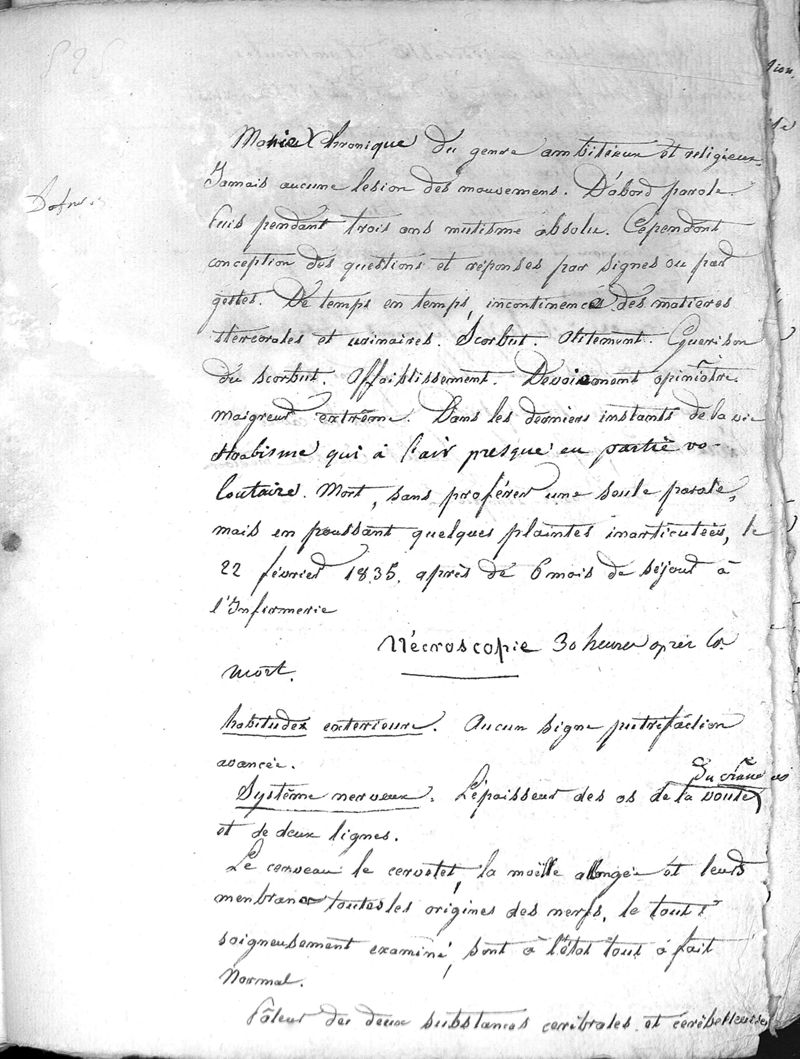 Manie Chronique du genre ambitieux et religieux.
Jamais aucune lesion des mouvemens. D'abord parole.
Puis pendant trois ans mutisme absolu. Cependant
conception des questions et réponses par signes ou par
gestes. De temps en temps, incontinence des matieres
stercorales et urinaires. Scorbut. Alitement. Guerison
du scorbut. Affaiblissement. Devoiement opiniâtre.
maigreur extrême. Dans les derniers instants de la vie
strabisme qui à l'air presque en partie vo-
lontaire. Mort, sans proférer une seule parole,
mais en poussant quelques plaintes inarticulées, le
22 février 1835. après de 6 mois de séjour à
l'Infirmerie
Nécroscopie 30 heures après la
mort.
habitudes exterieure. Aucun signe putréfaction
avancée.
du crâne
Système nerveux. L'épaisseur des os de la voute
et de deux lignes.
Le cerveau le cervelet, la moëlle allongée et leurs
menbranes toutes les origines des nerfs, le tout
soigneusement examiné, sont à l'état tout à fait
Normal.
Pâleur des deux substances cerébrales et cerébelleuses